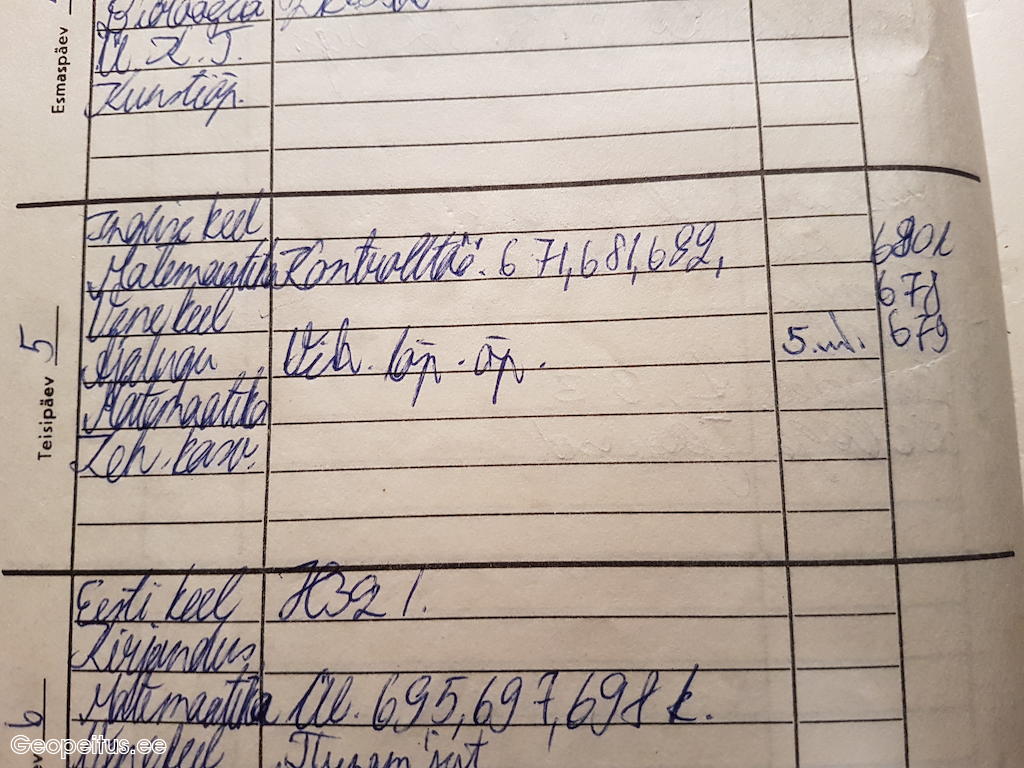 Bioloogia
Esmaspäev
Ü. K. T.
Kunstiõp.
Inglise keel
Matemaatika Kontrolltöö. 671, 681, 682, 680k
Vene keel 678
Ajalugu Vih. lõp. õp. 5. 679
Teisipäev 5
Matemaatika
Keh. kasv.
Eesti keel H32 1.
Kirjandus
Matemaatika Ül. 695, 697, 698 k.
6
Geopeitus.ee